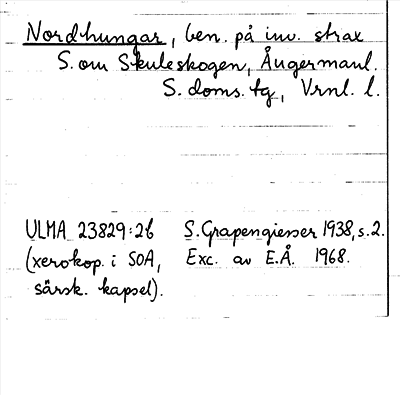 Nordhungar, ben. på inv. strax
S. om Skuleskogen, Ångermanl.
S. doms. tg, Vrnl. l.
ULMA 23829:26 S. Grapengiesser 1938, s. 2.
(xerokop. i SOA, Exc. av E.Å. 1968.
särsk. kapsel).